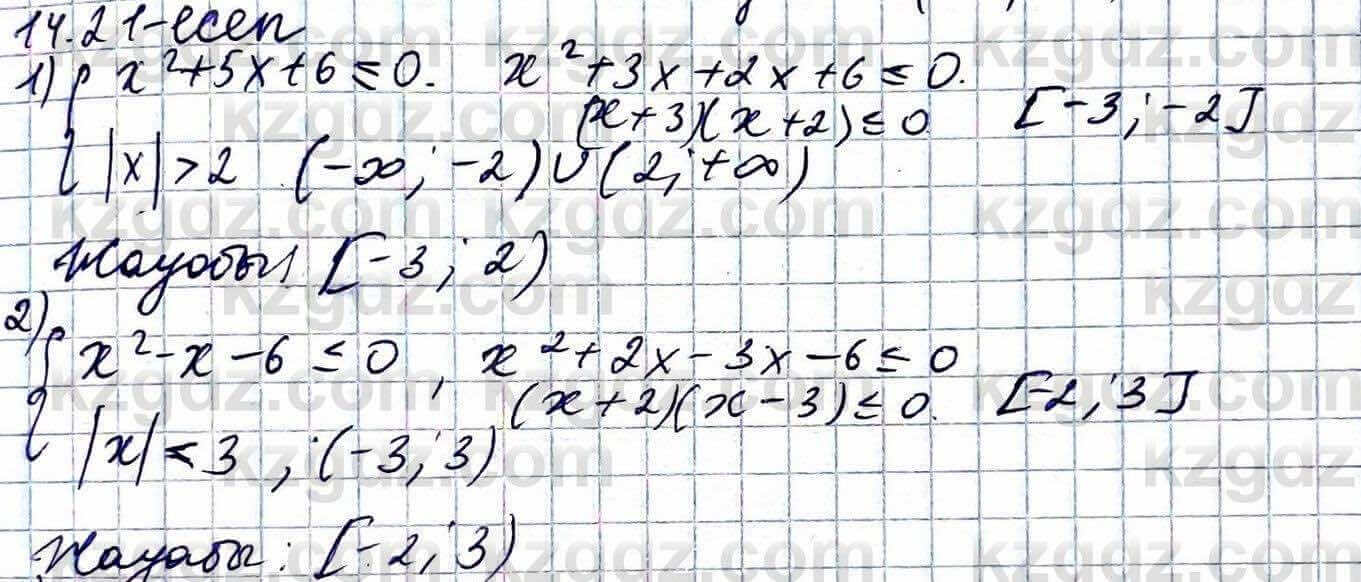 14.21-есеп
1) { x²+5x+6≤0. x²+3x+2x+6≤0.
(x+3)(x+2)≤0 [-3;-2]
|x|>2 (-∞;-2)∪(2;+∞)
Жауабы: [-3; 2)
2) { x²-x-6≤0, x²+2x-3x-6≤0
(x+2)(x-3)≤0. [-2;3]
|x|<3, (-3;3)
Жауабы: [-2;3)